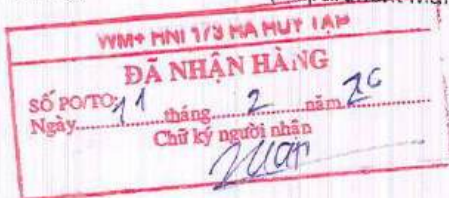 WM+ HNI 173 HA HUY TAP
ĐÃ NHẬN HÀNG
SỐ PO/TO:
Ngày 11 tháng 2 năm 26
Chữ ký người nhận